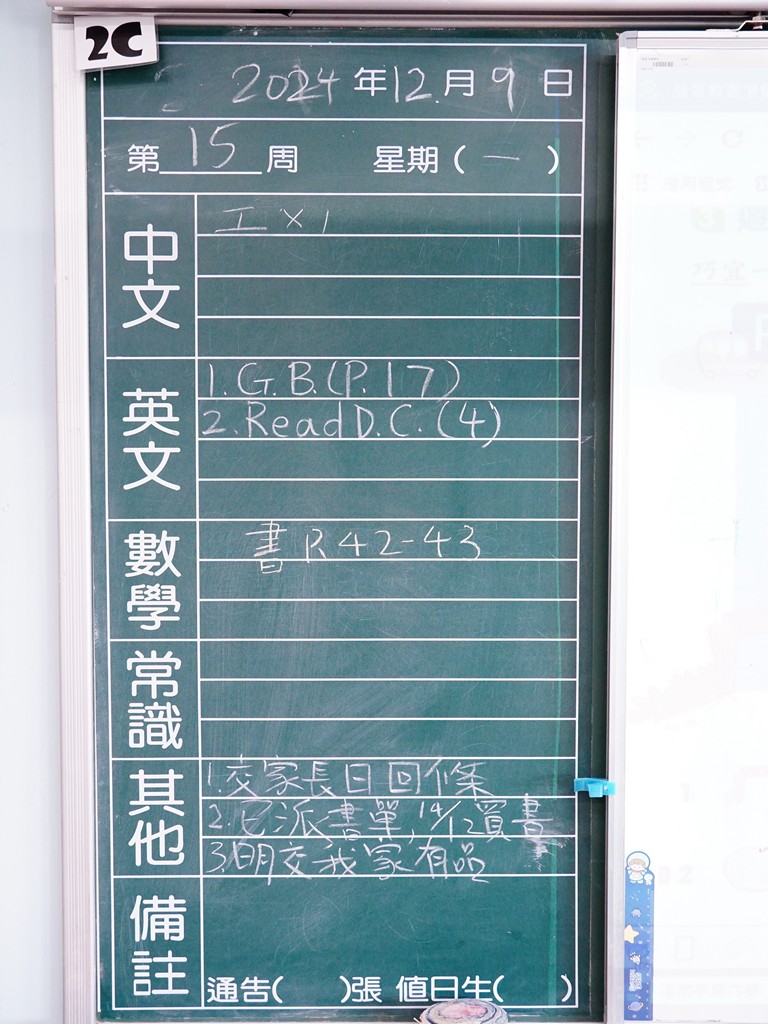 2C
2024年12月9日
第15周 星期(一)
中文
工×1
英文
1.G.B.(P.17)
2.Read D.C.(4)
數學
書P.42-43
常識
其他
1.交家長日回條
2.已派書單,14/12買書
3.明交我家有品
備註
通告( )張 值日生( )